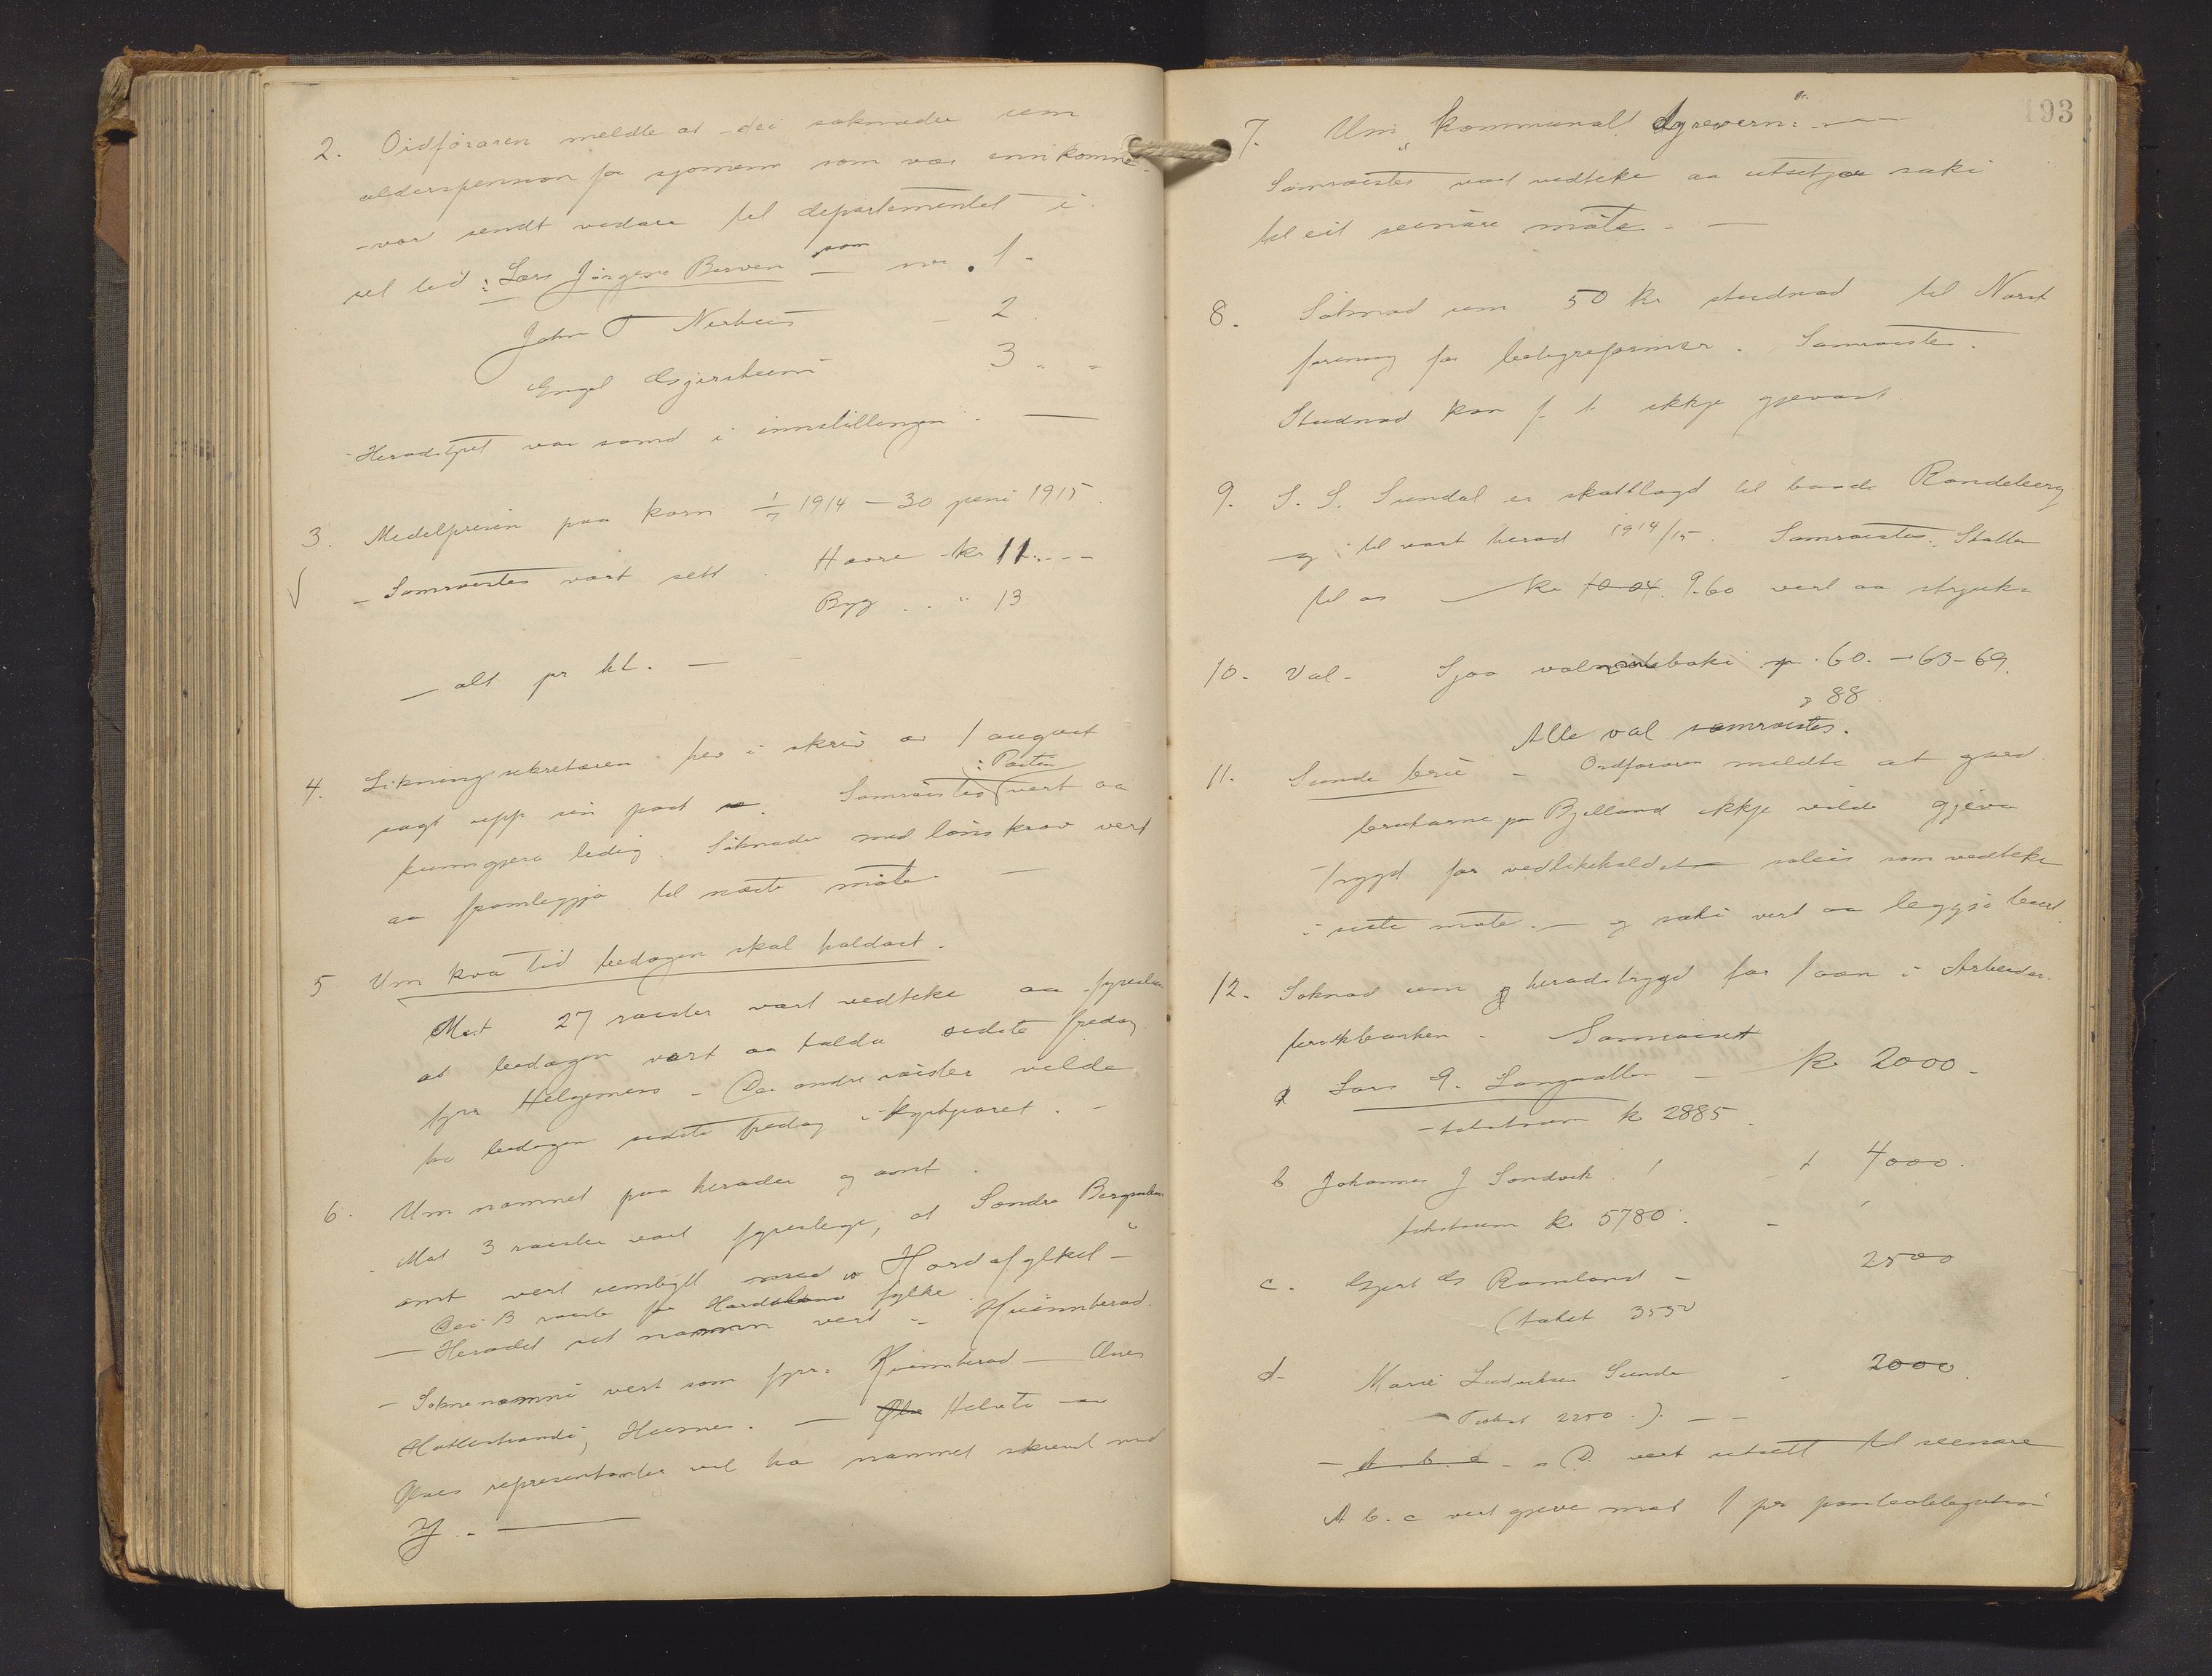 2. Ordføraren meldte at dei søknader um
alderspension for sjømenn som var innkomne
var sendt vidare til departementet i
set tid: Lars Jørgens Berven som nr. 1.
John T Nerhus - 2.
Engel Esjersheim 3 " "
Heradstyret var samd i innstillingen.
3. Medelprisen paa korn 1/7 1914 — 30 juni 1915.
Samrøistes vart sett. Havre kr 11.
Byg . . " 13
— alt pr hl. —
4. Likningsekretæren hev i skriv av 1 august
: Posten
sagt upp sin post. Samrøistes vert aa
kunngjera ledig. Søknader med lønskrav vert
aa framleggja til næste møte. —
5 Um kva tid bedagen skal haldast.
Mot 27 røister vart vedteke aa fyreslaa
at bedagen vert aa halda sidste fredag
fyre Helgemess. Dei andre røister vilde
ha bedagen sidste fredag i
6. Um namnet paa herader og amt.
Mot 3 røister vart fyreslege, at Søndre Bergenhus
amt vert umbytt med "Hordafylket"
Dei 3 røista for Hordaland fylke.
— Heradet sit namn vert - Kvinnherad.
- Soknenamni vert som fyrr: Kvinnherad — Ænes
Ølve Helvte av
Ølves representantar vil ha namnet skrevet med
Ø. —
193
7. Um "kommunalt dyrevern" —
Samrøistes vart vedteke aa utsetja saki
til eit seinare møte. —
8. Søknad um 50 kr studnad til Norsk
forening for boligreformer. Samrøistes.
Studnad kan f. t. ikkje gjevast.
9. S. S. Sundal er skattlagd til baade Randeberg
og til vart herad 1914/15. Samrøistes. Skatten
til os kr 10.04. 9.60 vert aa stryka
10. Val. Sjaa valmøteboki p. 60. - 63 - 69.
og 88.
Alle val samrøistes.
11. Sunde bru - Ordføraren meldte at gard
brukarne paa Bjelland ikkje vilde gjeva
trygd for vedlikehaldet soleis som vedteke
i siste møte. — og saki vert aa leggja burt.
12. Søknad um heradstrygd for laan i Arbeidar-
brukbanken. Samrøistes
a Lars G. Langaatte — kr 2000.
takstsum kr 2885.
b Johannes J Sandvik - " 4000.
takstsum kr 5780. -
c. Gjert G Ramland - 2500
(takst 3550
d. Marie Ludviksen Sunde - 2000.
Takst 2250.). — -
- A. b. c - D. vert utsett til seenare
A b. c vert gjeve mot 1 pr panteobligation